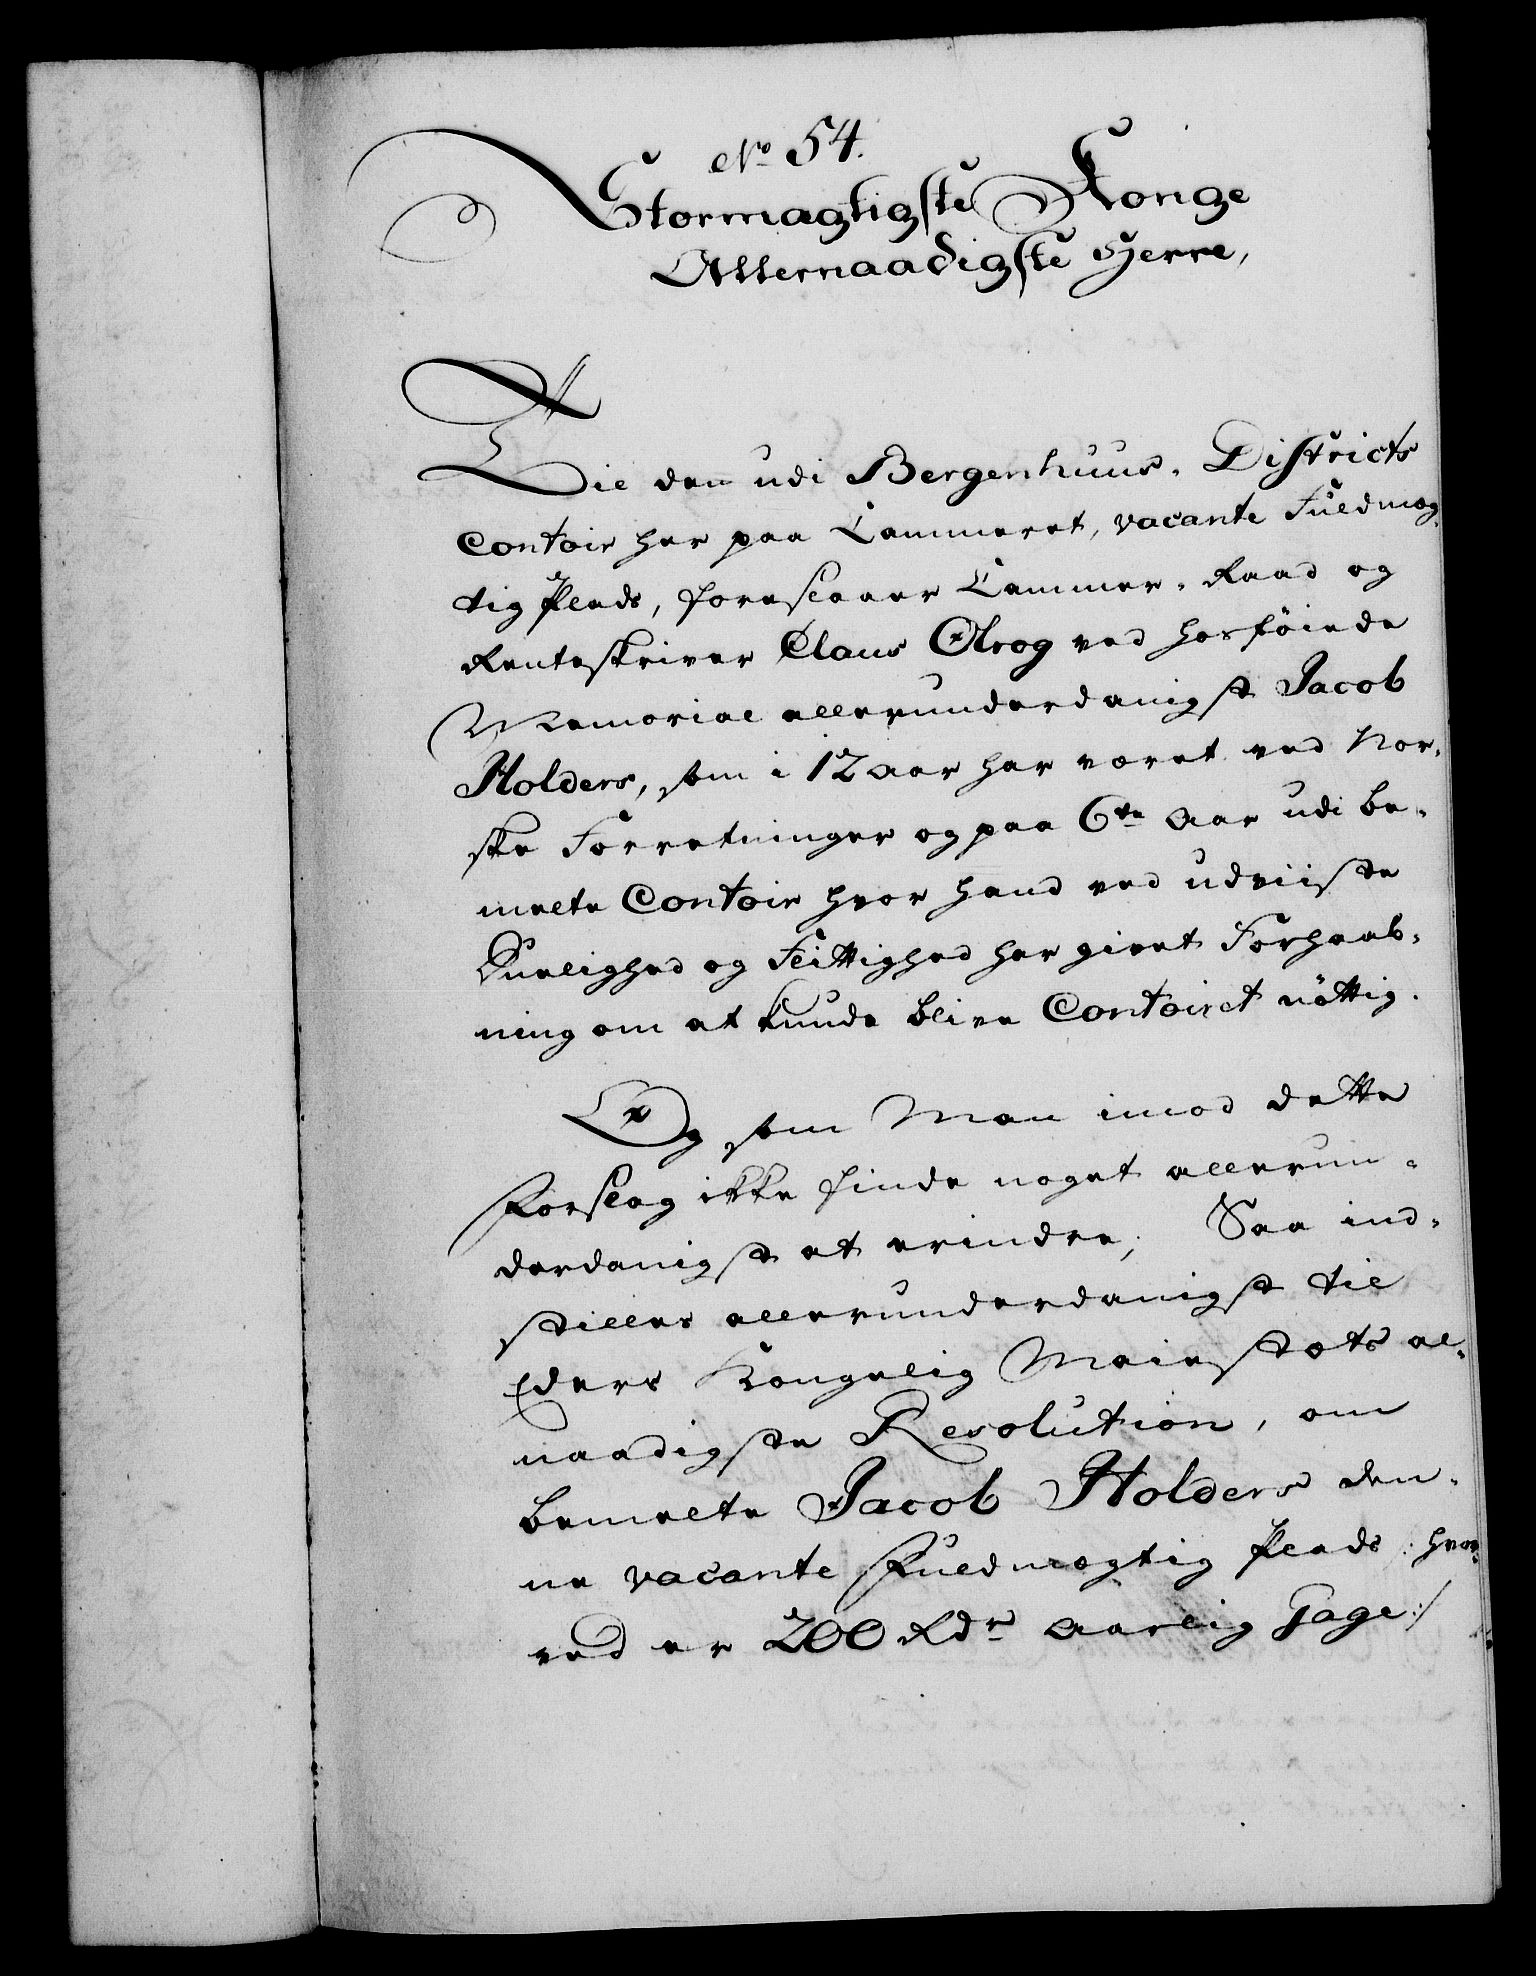 No 54.
Stormægtigste Konge
Allernaadigste Herre,
Til den udi Bergenhuus-Districts
Contoir her paa Cammeret, vacante Fuldmæg-
tig Plads, foreslaaer Cammer-Raad og
Renteskriver Claus Olrog ved hosføiede
Memorial allerunderdanigst Jacob
Holders, som i 12 aar har været ved Nor-
ske Forretninger og paa 6te Aar udi be-
melte Contoir hvor hand ved udviiste
Duelighed og Flittighed har givet Forhaab-
ning om at kunde blive Contoiret nøttig.
Og som Man imod dette
Forslag ikke finde noget allerun-
derdanigst at erindre; Saa ind-
stilles allerunderdanigst til
Eders Kongelig Maiestæts al-
naadigste Resolution, om
bemelte Jacob Holders den-
ne vacante Fuldmægtig Plads /: hvor-
ved er 200 Rdr Aarlig Gage :/